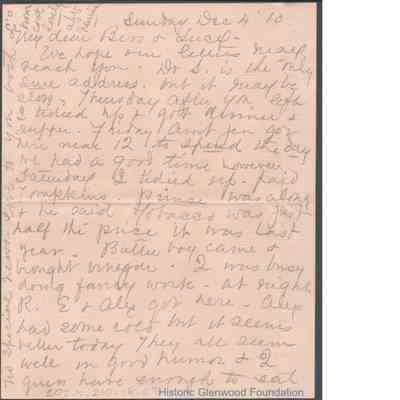 Sunday Dec 4" 10
My dear Bess & Lucy -
We hope our letters may
reach you - Do S. is the only
sure address. but it may be
slow. Thursday after you left
I tidied up & got dinner &
supper. Friday Aunt Jen got
here near 12 to spend the day
we had a good time however.
Saturday I tidied up - paid
Tompkins. Prince was along
& he said Tobacco was just
half the price it was last
year - Butter boy came &
bought vinegar - I was busy
doing fancy work - at night
R. E & Alex got here - Alex
had some cold but it seems
better today They all seem
well in good humor & I
guess have enough to eat
No special news
Historic Glenwood Foundation